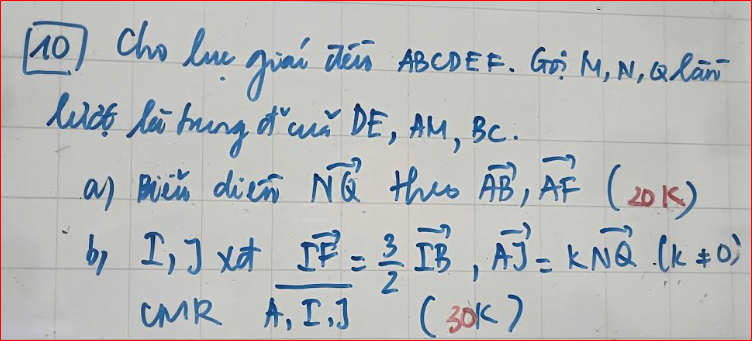 10) Cho lục giác đều ABCDEF. Gọi M, N, Q lần
lượt là trung đ' của DE, AM, BC.
a) Biểu diễn \(\overrightarrow{NQ}\) theo \(\overrightarrow{AB}\), \(\overrightarrow{AF}\) (20K)
b) I, J xđ \(\overrightarrow{IF} = \frac{3}{2}\overrightarrow{IB}\), \(\overrightarrow{AJ} = k\overrightarrow{NQ}\). (k ≠ 0)
CMR \(\overline{A, I, J}\) (30K)